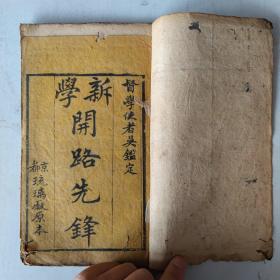 督學使者吳鑑定
新學
開路先鋒
京都琉璃廠原本